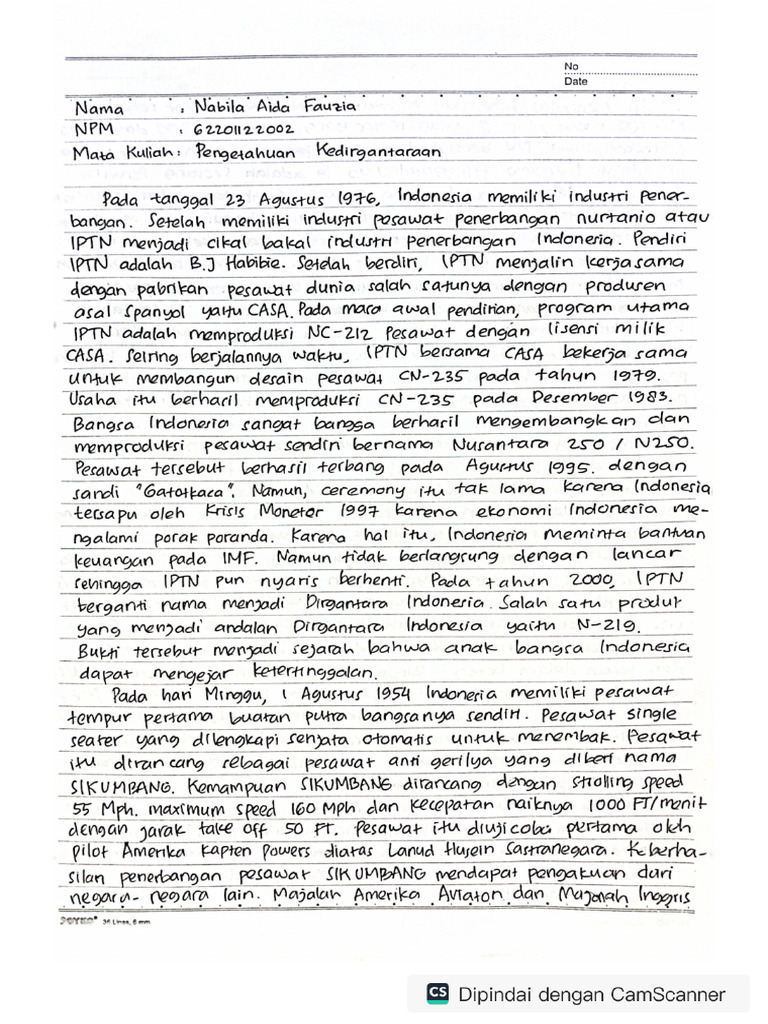 No
Date
Nama : Nabila Aida Fauzia
NPM : 62201122002
Mata Kuliah : Pengetahuan Kedirgantaraan
Pada tanggal 23 Agustus 1976, Indonesia memiliki industri pener-
bangan. Setelah memiliki industri pesawat penerbangan nurtanio atau
IPTN menjadi cikal bakal industri penerbangan Indonesia. Pendiri
IPTN adalah B.J Habibie. Setelah berdiri, IPTN menjalin kerjasama
dengan pabrikan pesawat dunia salah satunya dengan produsen
asal Spanyol yaitu CASA. Pada masa awal pendirian, program utama
IPTN adalah memproduksi NC-212 Pesawat dengan lisensi milik
CASA. Seiring berjalannya waktu, IPTN bersama CASA bekerja sama
untuk membangun desain pesawat CN-235 pada tahun 1979.
Usaha itu berhasil memproduksi CN-235 pada Desember 1983.
Bangsa Indonesia sangat bangga berhasil mengembangkan dan
memproduksi pesawat sendiri bernama Nusantara 250 / N250.
Pesawat tersebut berhasil terbang pada Agustus 1995. dengan
sandi "Gatotkaca". Namun, ceremony itu tak lama karena Indonesia
tersapu oleh Krisis Moneter 1997 karena ekonomi Indonesia me-
ngalami porak poranda. Karena hal itu, Indonesia meminta bantuan
keuangan pada IMF. Namun tidak berlangsung dengan lancar
sehingga IPTN pun nyaris berhenti. Pada tahun 2000, IPTN
berganti nama menjadi Dirgantara Indonesia. Salah satu produk
yang menjadi andalan Dirgantara Indonesia yaitu N-219.
Bukti tersebut menjadi sejarah bahwa anak bangsa Indonesia
dapat mengejar ketertinggalan.
Pada hari Minggu, 1 Agustus 1954 Indonesia memiliki pesawat
tempur pertama buatan putra bangsanya sendiri. Pesawat single
seater yang dilengkapi senjata otomatis untuk menembak. Pesawat
itu dirancang sebagai pesawat anti gerilya yang diberi nama
SIKUMBANG. Kemampuan SIKUMBANG dirancang dengan strolling speed
55 Mph. maximum speed 160 Mph dan kecepatan naiknya 1000 FT/menit
dengan jarak take off 50 FT. Pesawat itu diujicoba pertama oleh
pilot Amerika Kapten Powers diatas Lanud Husein Sastranegara. Keberha-
silan penerbangan pesawat SIKUMBANG mendapat pengakuan dari
negara-negara lain. Majalah Amerika Aviaton dan Majalah Inggris
34 Lines, 6 mm
CS Dipindai dengan CamScanner